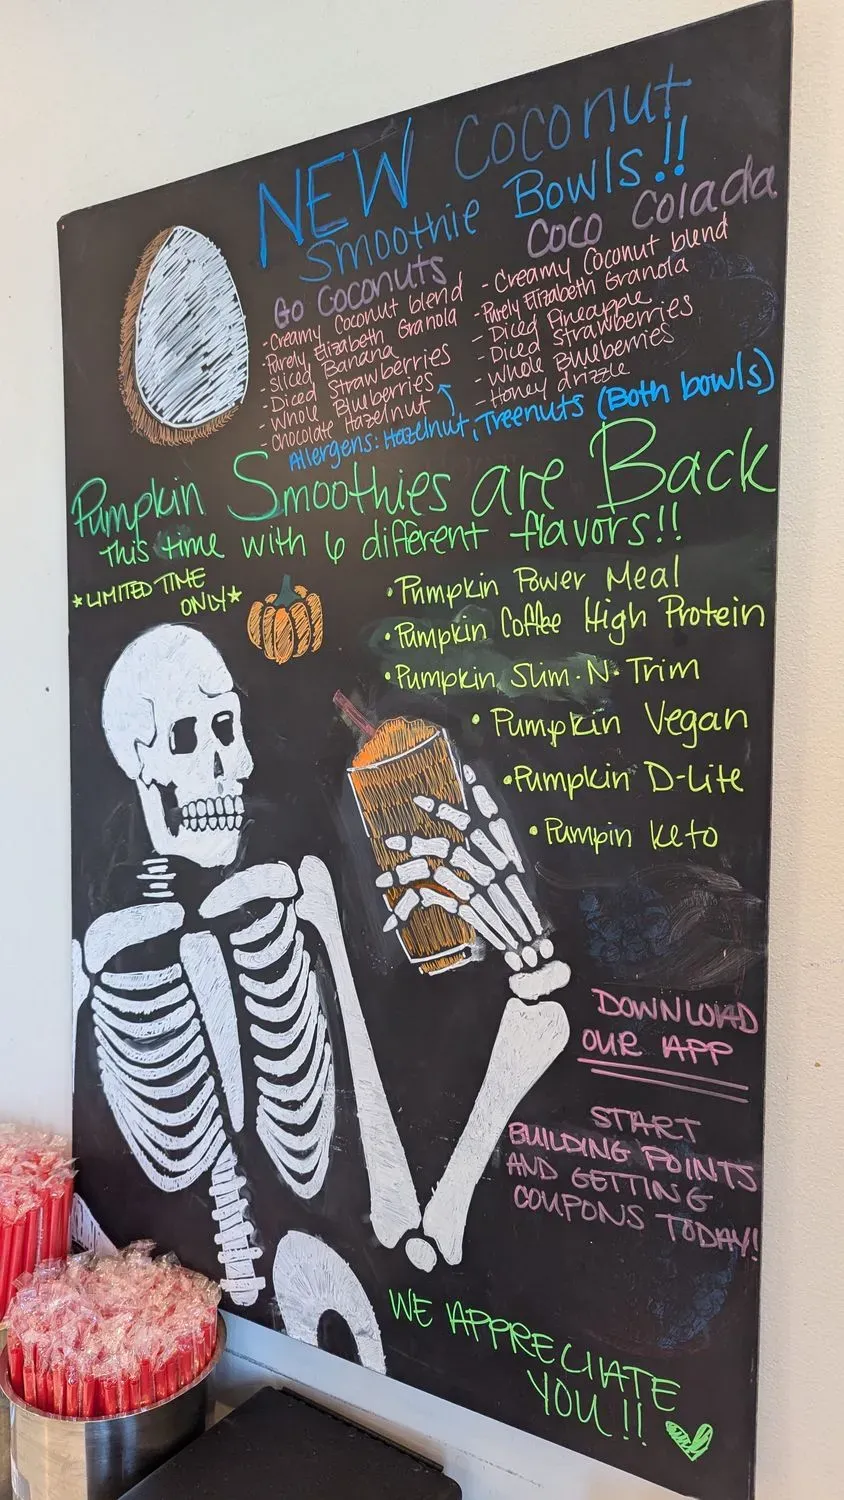 NEW Coconut
Smoothie Bowls!!
Go Coconuts
- Creamy Coconut blend
- Purely Elizabeth Granola
- Sliced Banana
- Diced Strawberries
- Whole Blueberries
- Chocolate Hazelnut
Coco Colada
- Creamy Coconut blend
- Purely Elizabeth Granola
- Diced Pineapple
- Diced Strawberries
- Whole Blueberries
- Honey drizzle
Allergens: Hazelnut, Treenuts (Both bowls)
Pumpkin Smoothies are Back
This time with 6 different flavors!!
*LIMITED TIME
ONLY*
• Pumpkin Power Meal
• Pumpkin Coffee High Protein
• Pumpkin Slim·N·Trim
• Pumpkin Vegan
• Pumpkin D-Lite
• Pumpin Keto
DOWNLOAD
OUR APP
START
BUILDING POINTS
AND GETTING
COUPONS TODAY!
WE APPRECIATE
YOU!!